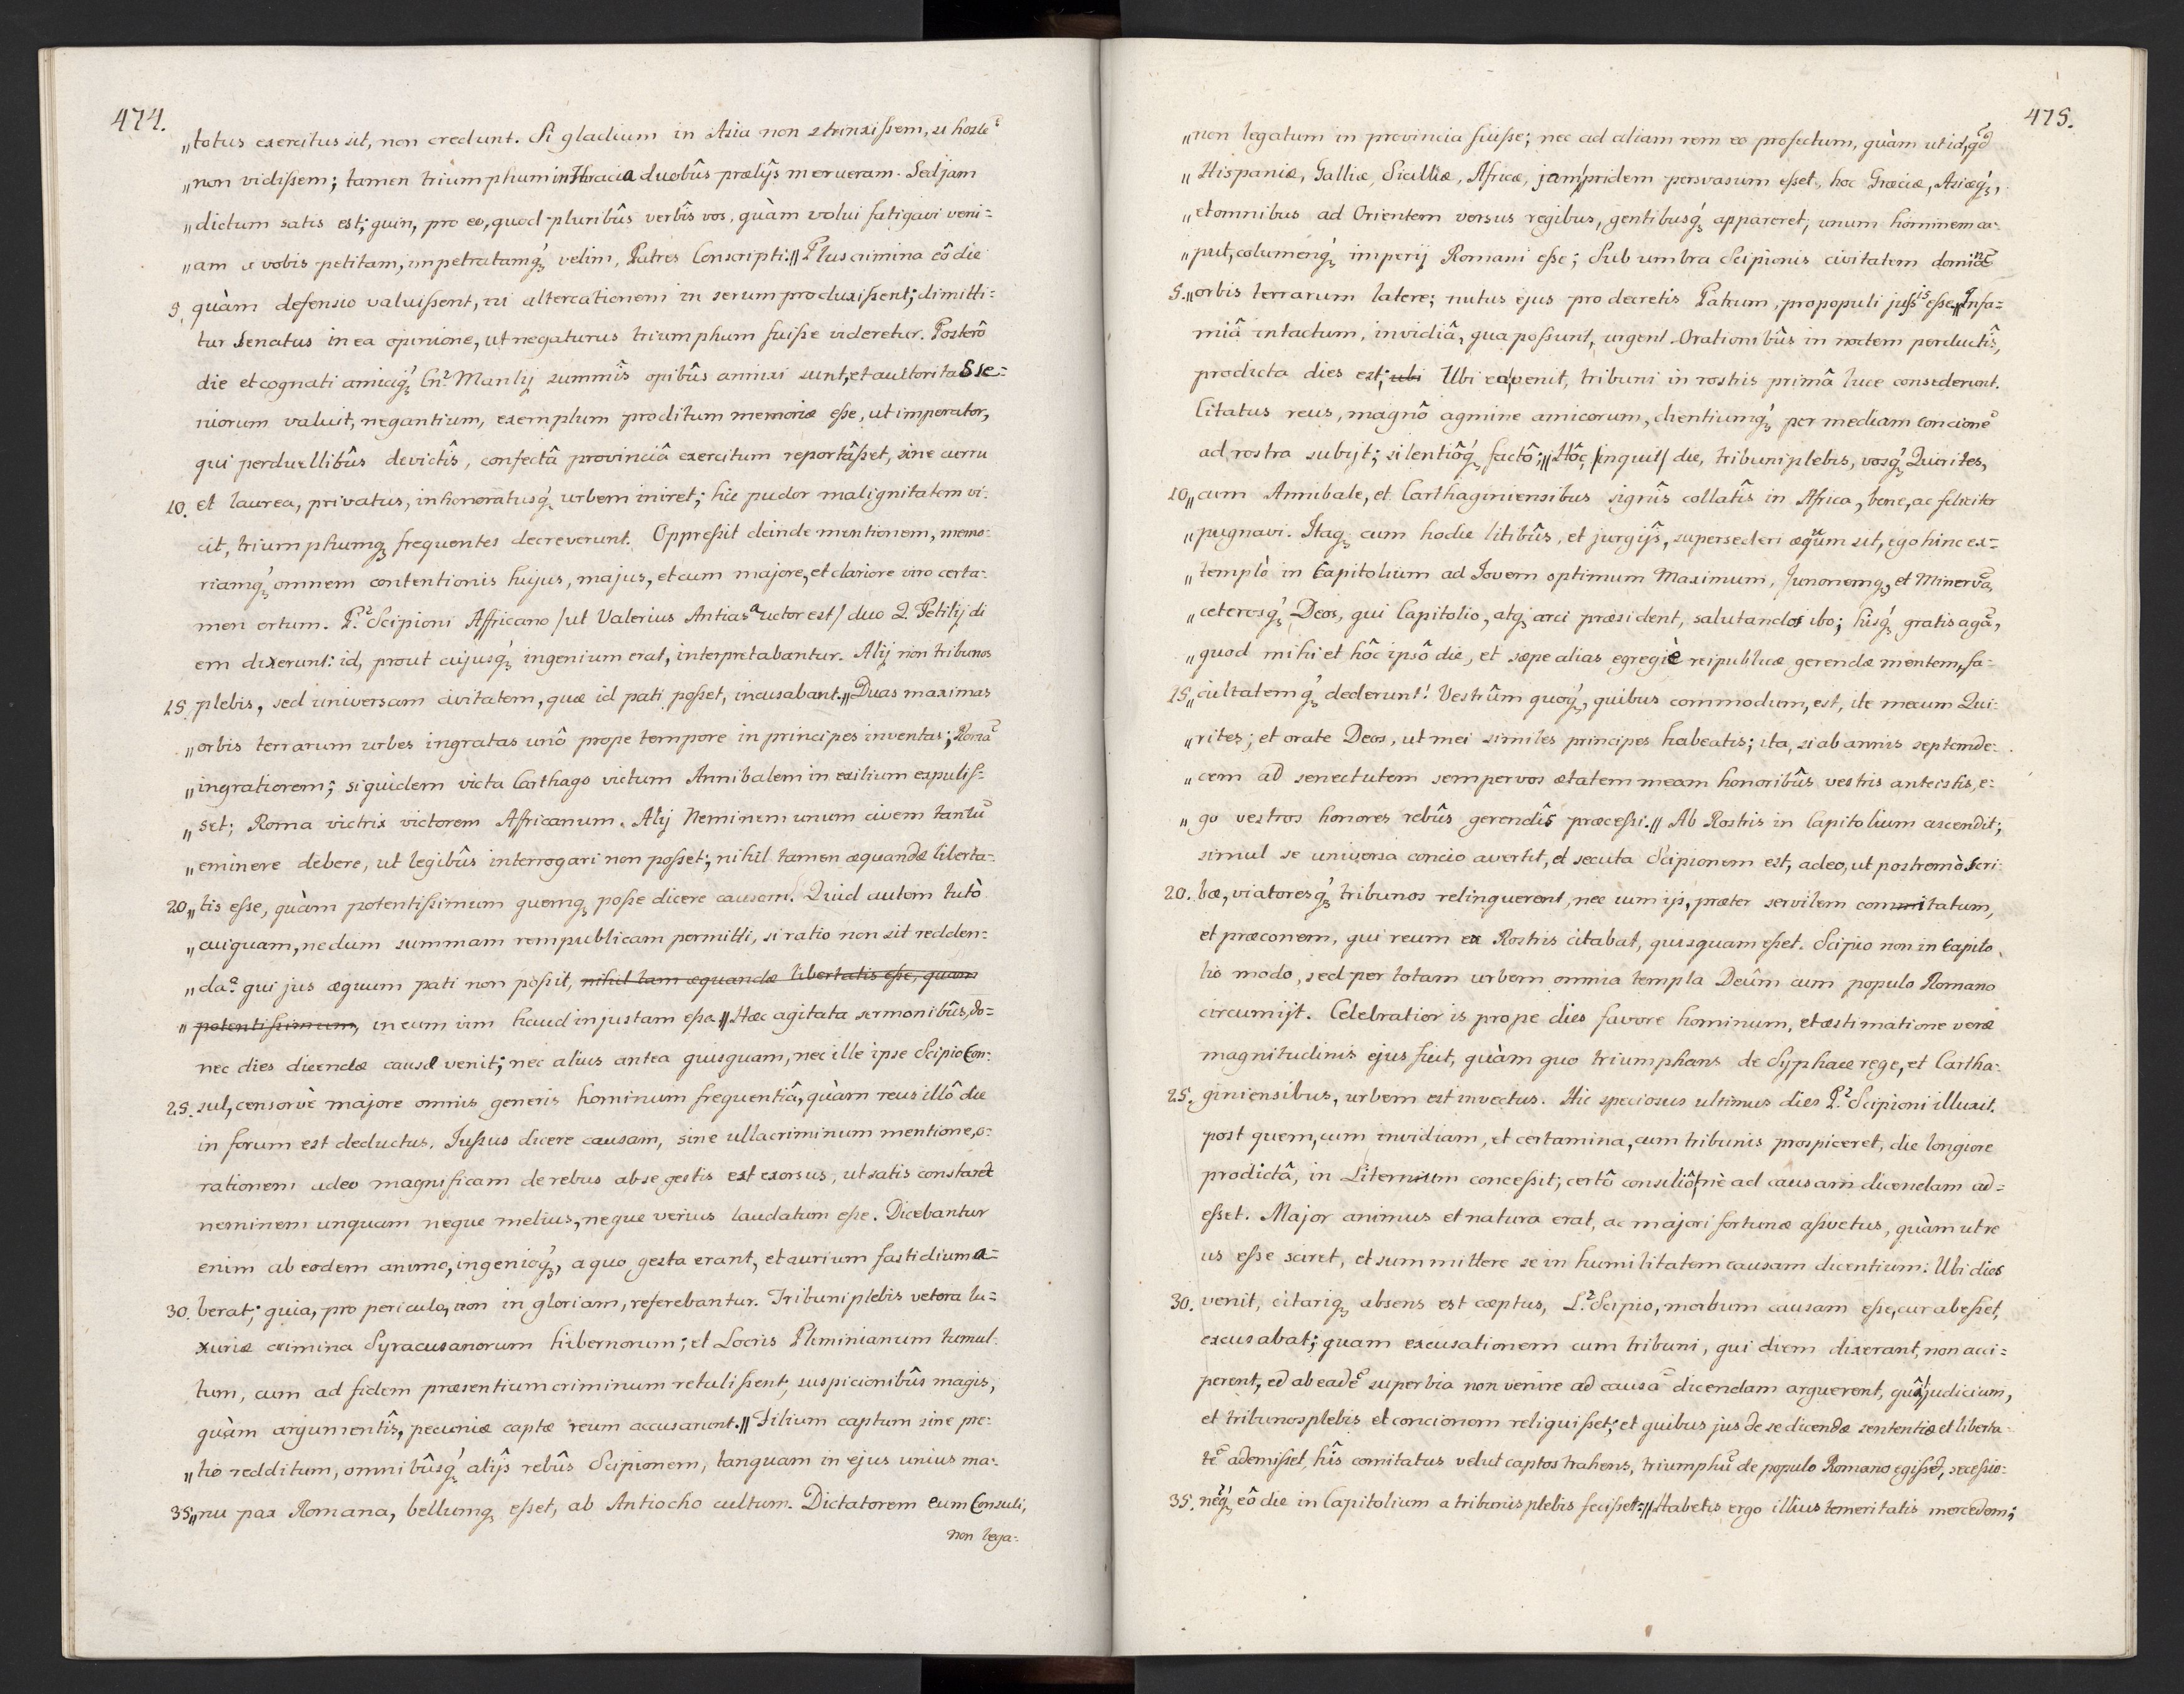 474.
„totus exercitus sit, non credunt. Si gladium in Asia non strinxissem, si hostē
„non vidissem; tamen triumphum in Thracia duobûs prœlijs merueram. Sed jam
„dictum satis est; quin, pro eo, quod pluribûs verbîs vos, quàm volui fatigavi veni=
„am a vobis petitam, impetratamq́ꝫ velim, Patres Conscripti.〃 Plus crimina eô die
5. quàm defensio valuissent, ni altercationem in serum produxissent; dimitti=
tur Senatus in ea opinione, ut negaturus triumphum fuisse videretur. Posterô
die et cognati amiciq́ꝫ Cn.ͦ Manlij summîs opibûs annixi sunt, et auctoritas se=
niorum valuit, negantium, exemplum proditum memoriæ esse, ut imperator,
qui perduellibûs devictîs, confectâ provinciâ exercitum reportâsset, sine curru
10. et laurea, privatus, inhonoratusq́ꝫ urbem iniret; hic pudor malignitatem vi=
cit, triumphumqꝫ frequentes decreverunt. Oppressit deinde mentionem, memo=
riamq́ꝫ omnem contentionis hujus, majus, et cum majore, et clariore viro certa=
men ortum. P.ͦ Scipioni Affricano /ut Valerius Antias auctor est/ duo Q. Petilij di
em dixerunt: id, prout cujusq́ꝫ ingenium erat, interpretabantur. Alij non tribunos
15. plebis, sed universam civitatem, quæ id pati posset, incusabant.〃 Duas maximas
„orbis terrarum urbes ingratas unô prope tempore in principes inventas; Romā
„ingratiorem; siquidem victa Carthago victum Annibalem in exilium expulis=
„set; Roma victrix victorem Affricanum. Alij Neminem unum civem tantū
„eminere debere, ut legibûs interrogari non posset; nihil tamen æquandæ liberta=
20.„tis esse, quàm potentissimum quemqꝫ posse dicere causam. Quid autem tutò
„cuiquam, nedum summam rempublicam permitti, si ratio non sit redden=
„da? qui jus æquum pati non possit, nihil tam æquandæ libertatis esse, quam
„potentissimum, in eum vim haud injustam esse.〃 Hæc agitata sermonibûs, do=
nec dies dicendæ causæ venit; nec alius antea quisquam, nec ille ipse Scipio Con=
25. sul, censorvè majore omnis generis hominum frequentiâ, quàm reus illô die
in forum est deductus. Jussus dicere causam, sine ulla criminum mentione, o=
rationem adeo magnificam de rebus ab se gestis est exorsus, ut satis constaret
neminem unquam neque melius, neque verius laudatum esse. Dicebantur
enim ab eodem animo, ingenioq́ꝫ, a quo gesta erant, et aurium fastidium a=
30. berat; quia, pro periculo, non in gloriam, referebantur. Tribuni plebis vetera lu=
xuriæ crimina Syracusanorum hibernorum; et Locris Pleminianum tumul=
tum, cum ad fidem præsentium criminum retulissent, suspicionibûs magis,
quàm argumentîs, pecuniæ captæ reum accusarunt.〃 Filium captum sine pre=
„tio redditum, omnibûsq́ꝫ alijs rebûs Scipionem, tanquam in ejus unius ma=
35.„nu pax Romana, bellumqꝫ esset, ab Antiocho cultum. Dictatorem eum Consuli,
non lega=
475.
„non legatum in provincia fuisse; nec ad aliam rem eo profectum, quàm ut id, qd̄
„Hispaniæ, Galliæ, Siciliæ, Africæ, jam pridem persvasum esset, hoc Græciæ, Asiæq́ꝫ,
„et omnibus ad Orientem versus regibus, gentibusq́ꝫ appareret, unum hominem ca=
„put, columenq́ꝫ imperij Romani esse; Sub umbra Scipionis civitatem dominā
5.„orbis terrarum latere; nutus ejus pro decretis Patrum, pro populi jussis esse.〃 Infa=
miâ intactum, invidiâ, qua possunt, urgent. Orationibûs in noctem perductîs,
prodicta dies est; ubi Ubi ea venit, tribuni in rostris primâ luce consederunt.
Citatus reus, magnô agmine amicorum, clientiumq́ꝫ per mediam concionē
ad rostra subijt; silentiôq́ꝫ factô;〃 Hôc /inquit/ die, tribuni plebis, vosq́ꝫ Quirites,
10.„cum Annibale, et Carthaginiensibus signîs collatîs in Africa, bene, ac feliciter
„pugnavi. Itaqꝫ cum hodie litibûs, et jurgijs, supersederi æquum sit, ego hinc ex=
„templò in Capitolium ad Jovem optimum Maximum, Junonemqꝫ, et Minervā,
„ceterosq́ꝫ Deos, qui Capitolio, atqꝫ arci præsident, salutandos ibo; hisq́ꝫ gratis agā,
„quod mihi et hôc ipsô die, et sæpe alias egregiè reipublicæ gerendæ mentem, fa=
15.„cultatemq́ꝫ dederunt! Vestrûm quoq́ꝫ, quibus commodum, est, ite mecum Qui=
„rites; et orate Deos, ut mei similes principes habeatis; ita, si ab annis septemde=
„cem ad senectutem semper vos ætatem meam honoribûs vestris anteistis, e=
„go vestros honores rebûs gerendîs præcessi.〃 Ab Rostris in Capitolium ascendit;
simul se universa concio avertit, et secuta Scipionem est, adeo, ut postremò scri=
20. bæ, viatoresq́ꝫ tribunos relinquerent, nec cum ijs, præter servilem commitatum,
et præconem, qui reum ex Rostris citabat, quisquam esset. Scipio non in Capito=
lio modo, sed per totam urbem omnia templa Deûm cum populo Romano
circumijt. Celebratior is prope dies favore hominum, et æstimatione veræ
magnitudinis ejus fuit, quàm quo triumphans de Syphace rege, et Cartha=
25. giniensibus, urbem est invectus. Hic speciosus ultimus dies P.ͦ Scipioni illuxit.
post quem, cum invidiam, et certamina, cum tribunis prospiceret, die longiore
prodictâ, in Liternium concessit; certô consiliô, nè ad causam dicendam ad=
esset. Major animus et natura erat, ac majori fortunæ assvetus, quàm ut re
us esse sciret, et summittere se in humilitatem causam dicentium. Ubi dies
30. venit, citariqꝫ absens est cœptus, L.ͦ Scipio, morbum causam esse, cur abesset,
excusabat; quam excusationem cum tribuni, qui diem dixerant, non acci=
perent, ed ab eadē superbia non venire ad causā dicendam arguerent, quâ judicium,
et tribunos plebis et concionem reliquisset; et quibus jus de se dicendæ sententiæ et liberta=
tē ademisset, hîs comitatus velut captos trahens, triumphū de populo Romano egisset, secessio=
35. nēq́ꝫ eô die in Capitolium a tribunis plebis fecisset:〃 Habetis ergo illius temeritatis mercedem;